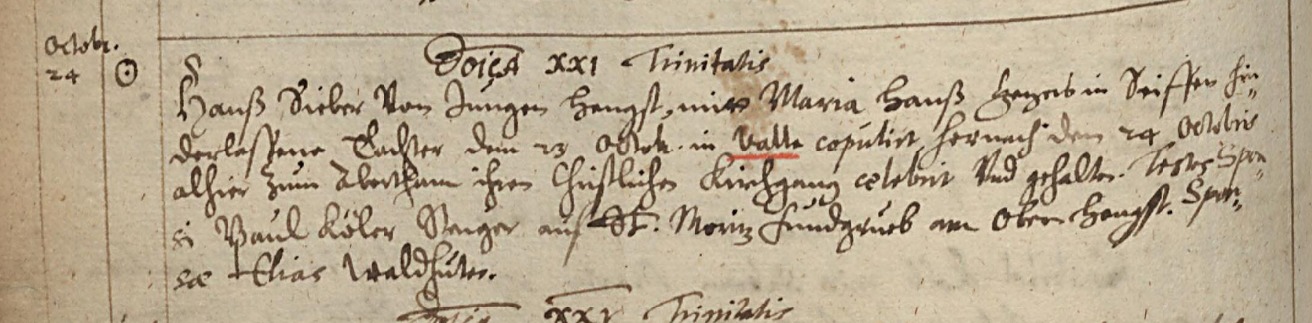 Octobr.
24 ☉
Doica XXI Trinitatis
Hanß Sieber Vom Jungen Hengst, mitt Maria Hanß in Seiffen hin„
derlassene Tochter dem 23 Octob. in Valle copulirt hernach den 24 Octobris
alhier zum Abertham ihren Christlichen Kirchgang celebrirt Vnd gehalten. Testes Spon„
si Paul Köler Steiger auf St. Moritz fundgrueb am Obern Hengst. Spon„
sæ Elias Waldhüter.
XXI Trinitatis